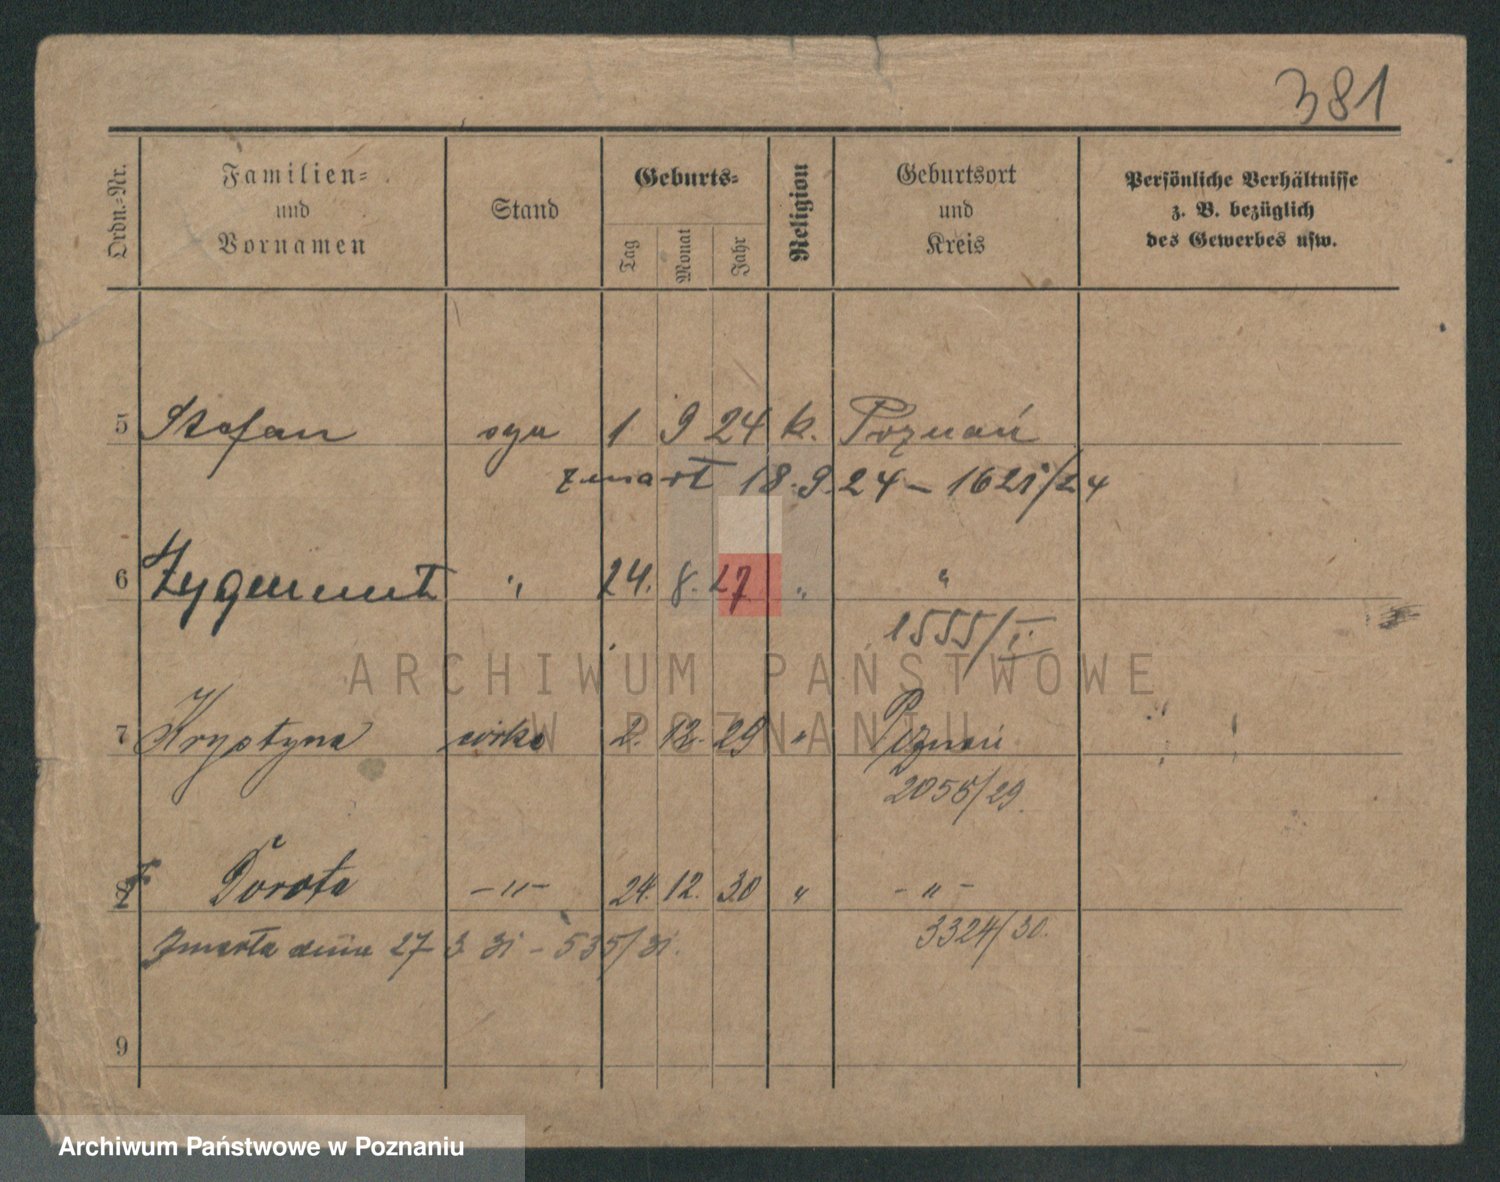 381
Ordn.-Nr. Familien- und Vornamen Stand Geburts- Tag Monat Jahr Religion Geburtsort und Kreis Persönliche Verhältnisse z. B. bezüglich des Gewerbes usw.
5 Stefan syn 1 9 24 k. Poznań
zmarł 18.9.24 – 1621/24
6 Zygmunt " 24. 8. 27 " "
1555/I.
ARCHIWUM PAŃSTWOWE
W POZNANIU
7 Krystyna córka 2. 12. 29 " Poznań
2055/29.
8 Dorota -"- 24. 12. 30 " -"-
3324/30.
Zmarła dnia 27 3 31 – 535/31.
9
Archiwum Państwowe w Poznaniu